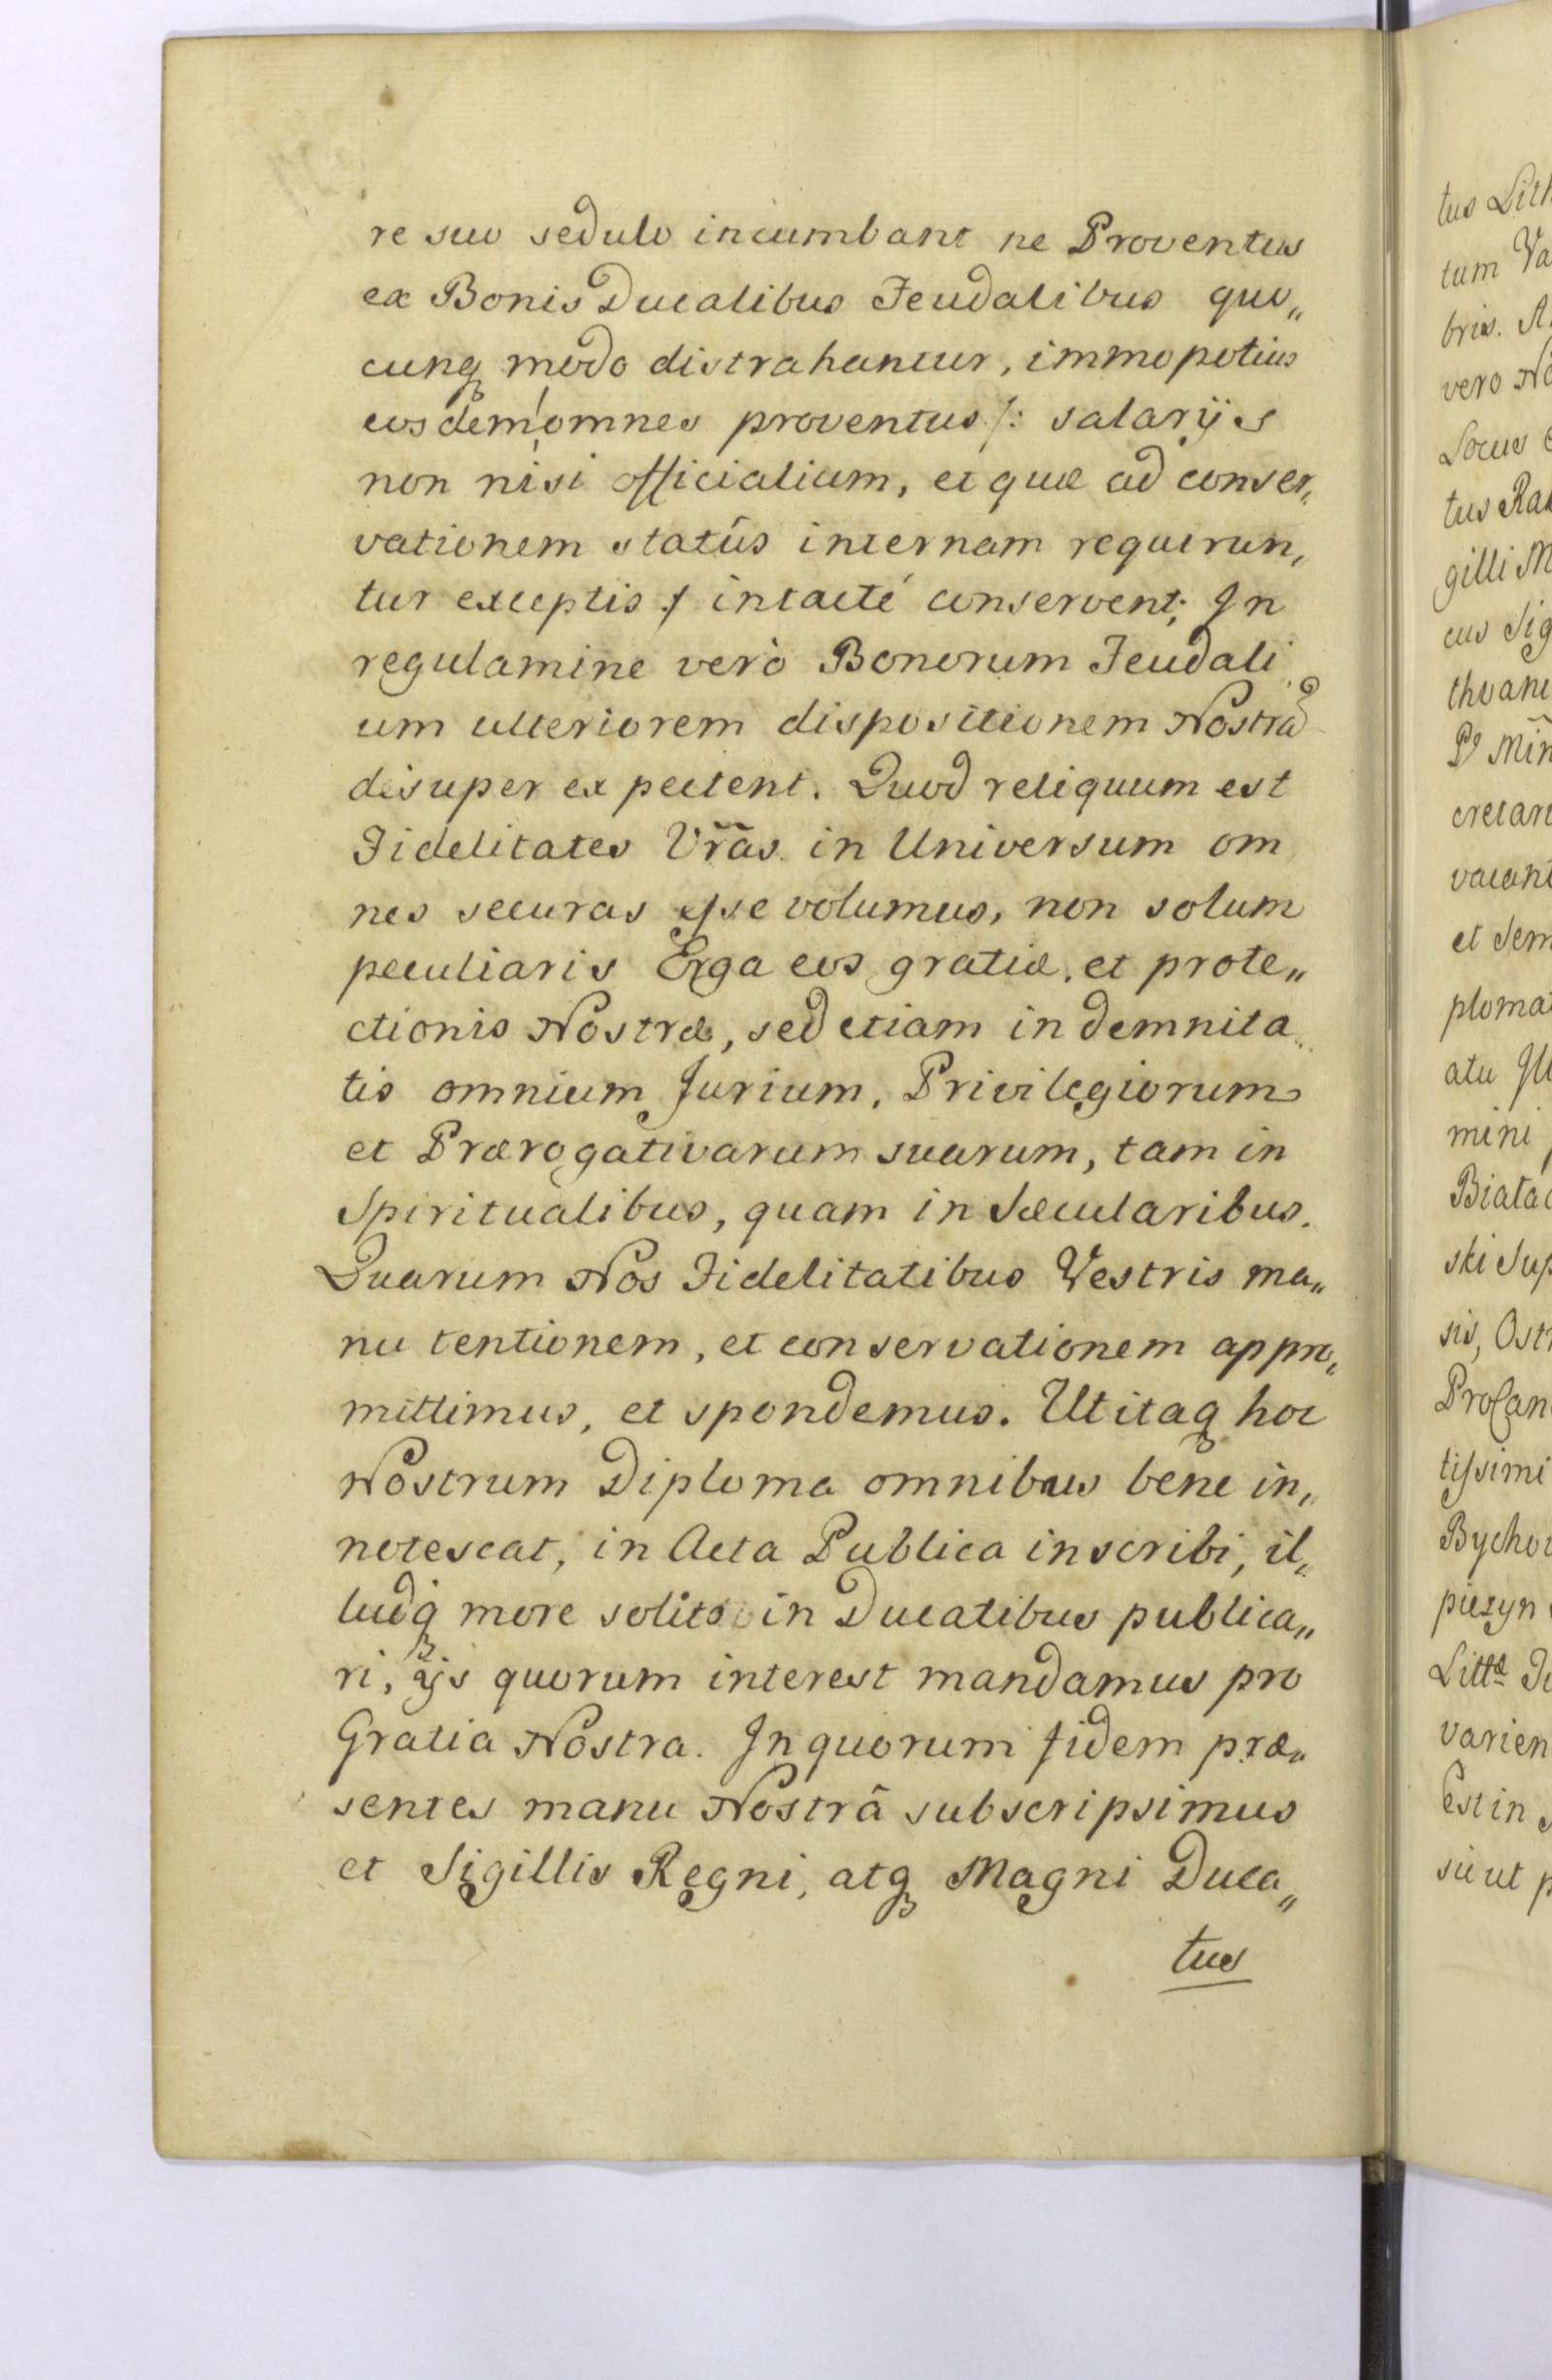 re suo sedulo incumbant ne Proventus
ex Bonis Ducalibus Feudalibus quo„
cunq modo distrahantur, immo potius
eosdem omnes proventus /: salarijs
non nisi officialium, et quæ ad conser„
vationem statûs internam requirun„
tur exceptis :/ intacté conservent; In
regulamine verò Bonorum Feudali„
um ulteriorem dispositionem Nostrã
desuper expectent. Quod reliquum est
Fidelitates Vr̃as in Universum om„
nes securas esse volumus, non solum
peculiaris Erga eos gratiæ, et prote„
ctionis Nostræ, sed etiam indemnita„
tis omnium Jurium, Privilegiorum
et Prærogativarum suarum, tam in
Spiritualibus, quam in Sæcularibus.
Quarum Nos Fidelitatibus Vestris ma„
nutentionem, et conservationem appro„
mittimus, et spondemus. Ut itaq hoc
Nostrum Diploma omnibus bene in„
notescat, in Acta Publica inscribi, il„
ludq more solito in Ducatibus publica„
ri, ijs quorum interest mandamus pro
Gratia Nostra. In quorum fidem præ„
sentes manu Nostrâ subscripsimus
et Sigillis Regni, atq Magni Duca„
tus
tus Lith
tum Va
bris. A
vero No
Locus
tus Ra
gilli M
cus Sig
thuani
Min
cretari
vacant
et Sem
ploma
atu Ill
mini
Biała
ski Sup
sis, Ost
ProCan
tissimi
Bycho
piezyn
Littæ
varien
Est in
sicut p